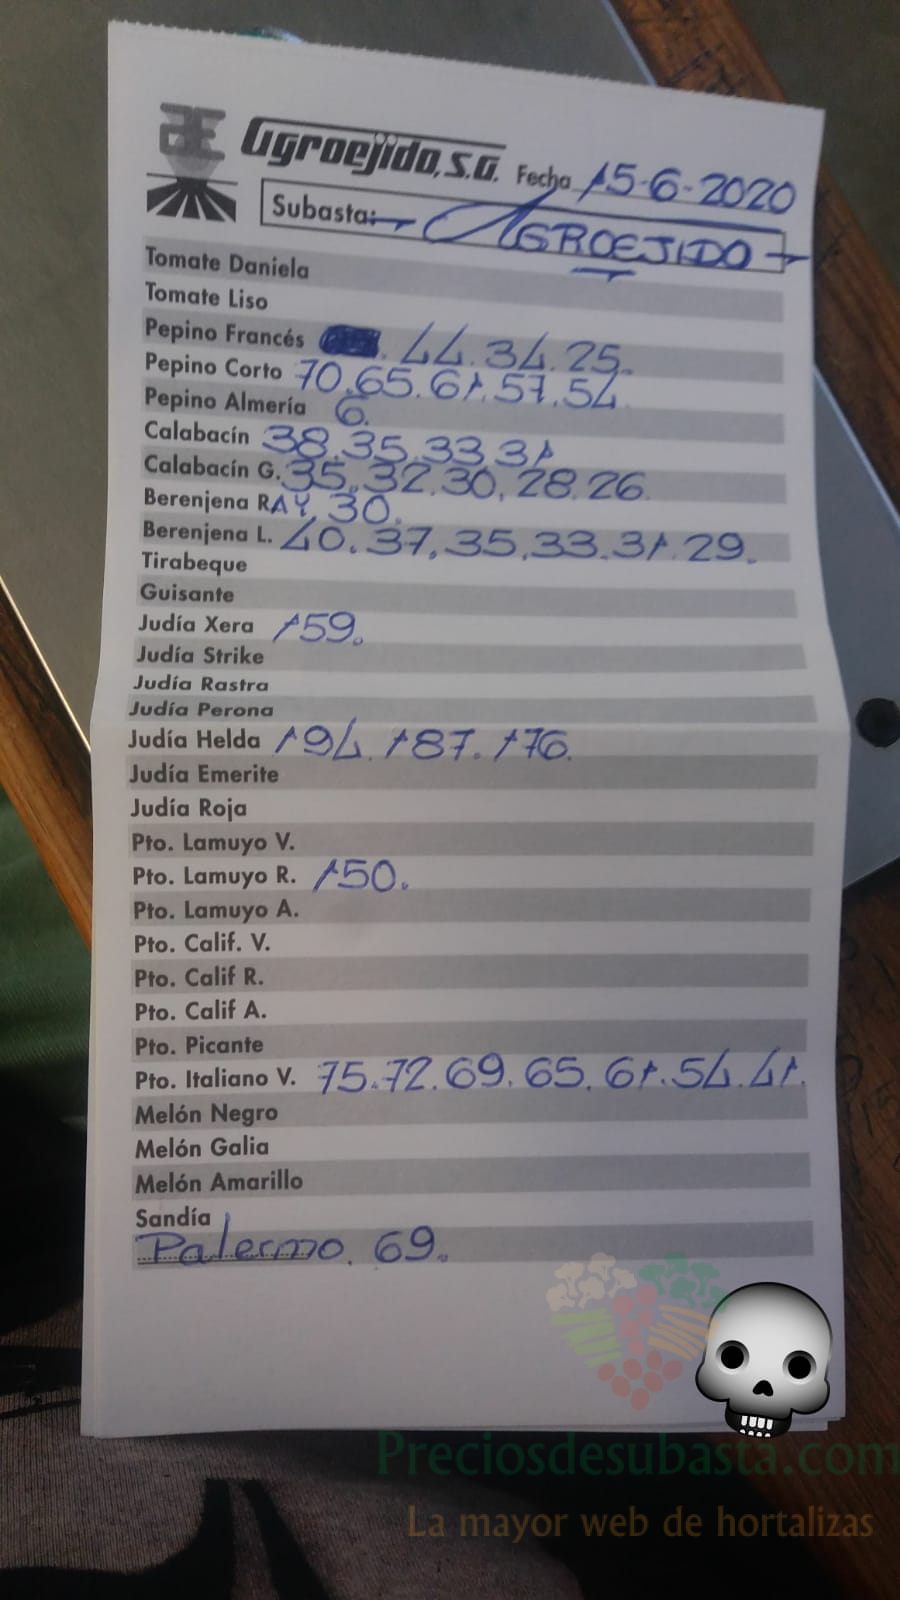 Agroejido, S.A. Fecha 15-6-2020
Subasta: AGROEJIDO
Tomate Daniela
Tomate Liso
Pepino Francés 44. 34. 25.
Pepino Corto 70. 65. 61. 57. 54
Pepino Almería 6.
Calabacín 38. 35. 33. 31
Calabacín G. 35. 32. 30, 28. 26.
Berenjena RAY. 30.
Berenjena L. 40. 37. 35. 33. 31. 29.
Tirabeque
Guisante
Judía Xera 159.
Judía Strike
Judía Rastra
Judía Perona
Judía Helda 194. 187. 176.
Judía Emerite
Judía Roja
Pto. Lamuyo V.
Pto. Lamuyo R. 150.
Pto. Lamuyo A.
Pto. Calif. V.
Pto. Calif R.
Pto. Calif A.
Pto. Picante
Pto. Italiano V. 75. 72. 69. 65. 61. 54. 41.
Melón Negro
Melón Galia
Melón Amarillo
Sandía
Palermo. 69.
Preciosdesubasta.com
La mayor web de hortalizas